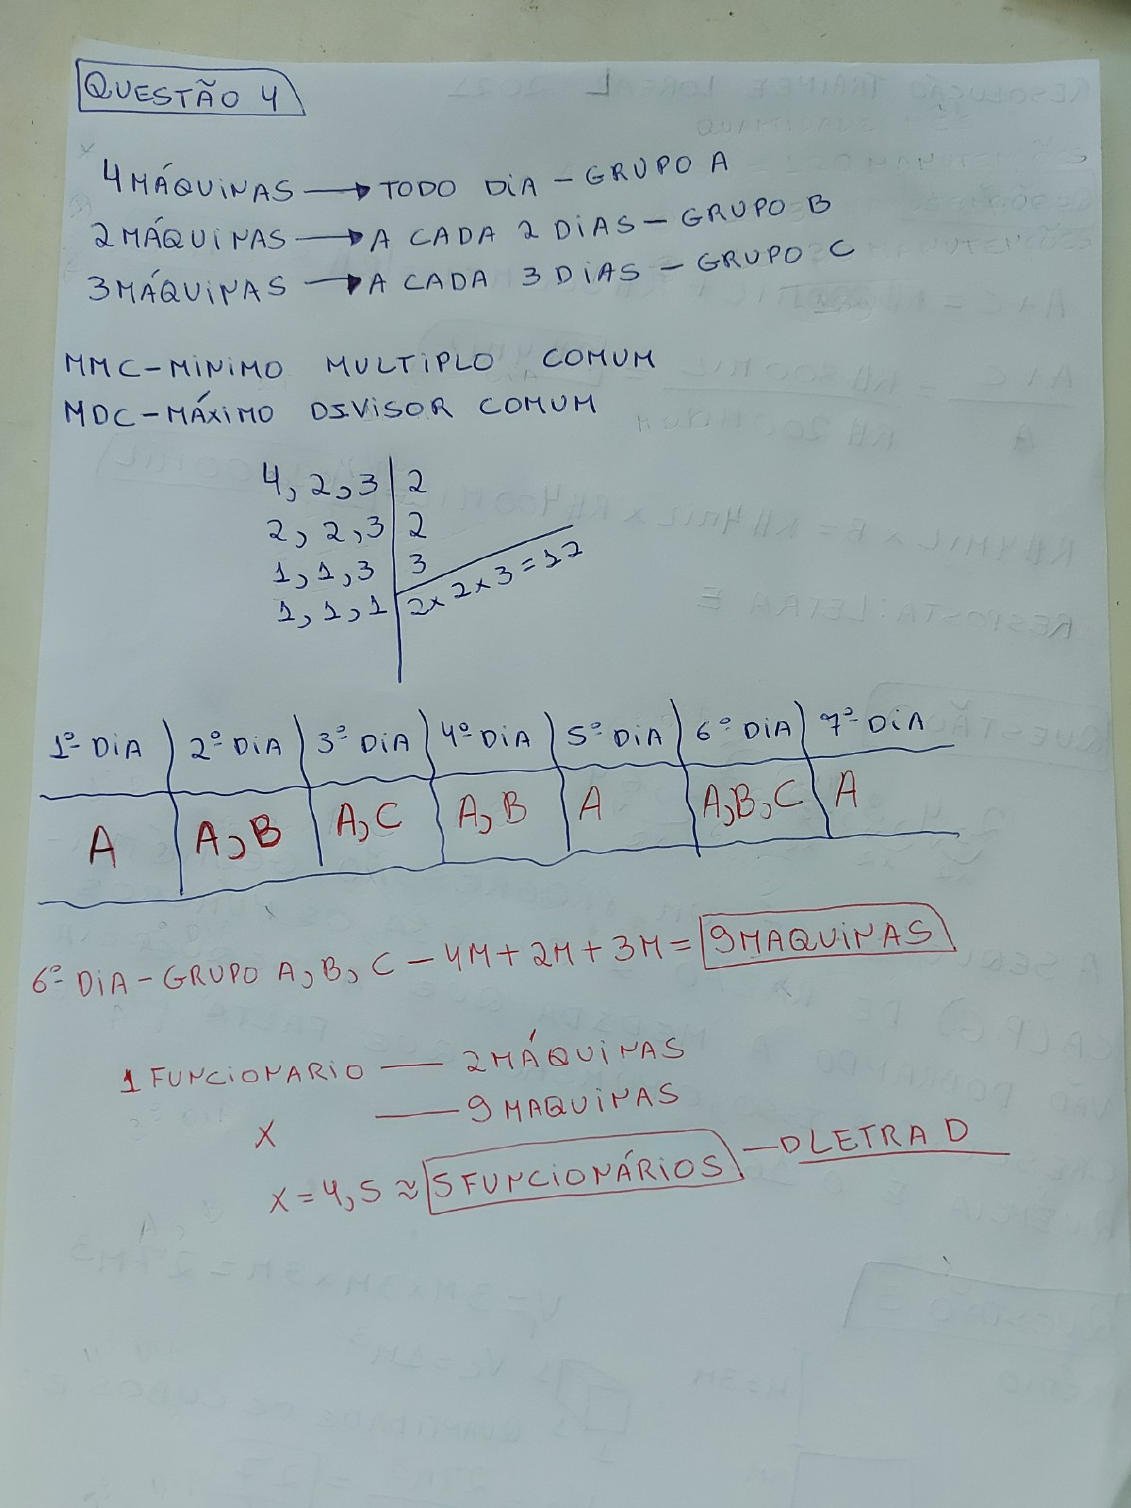 QUESTÃO 4
4 MÁQUINAS → TODO DIA - GRUPO A
2 MÁQUINAS → A CADA 2 DIAS - GRUPO B
3 MÁQUINAS → A CADA 3 DIAS - GRUPO C
MMC - MINIMO MULTIPLO COMUM
MDC - MÁXIMO DIVISOR COMUM
4, 2, 3 | 2
2, 2, 3 | 2
1, 1, 3 | 3
1, 1, 1 | 2 x 2 x 3 = 12
1º DIA 2º DIA 3º DIA 4º DIA 5º DIA 6º DIA 7º DIA
A A, B A, C A, B A A, B, C A
6º DIA - GRUPO A, B, C - 4M + 2M + 3M = 9 MAQUINAS
1 FUNCIONARIO — 2 MÁQUINAS
X — 9 MAQUINAS
X = 4,5 ≈ 5 FUNCIONÁRIOS → LETRA D